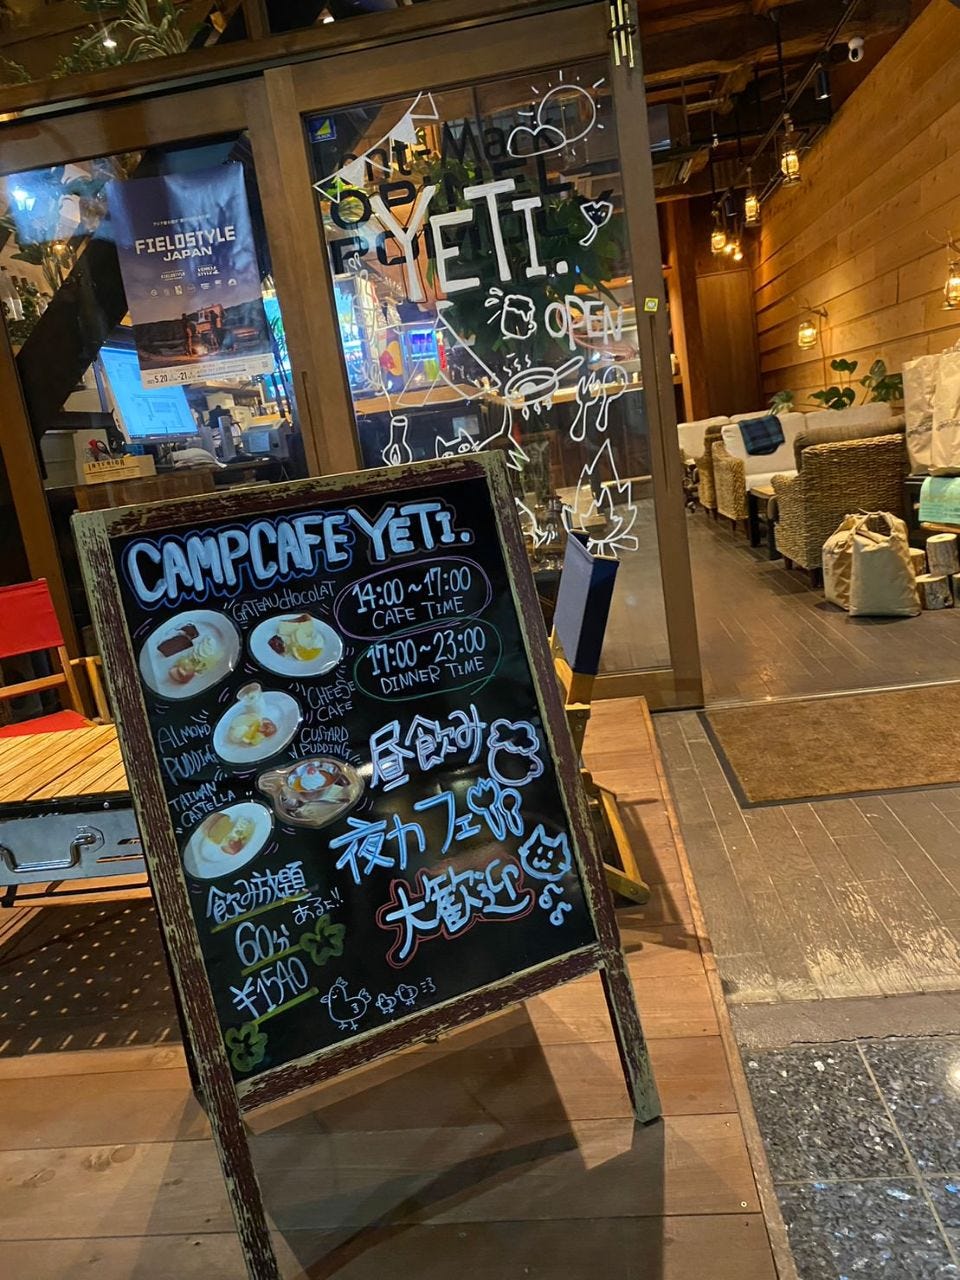 FIELDSTYLE
JAPAN
5.20 21
nt-Mark
OPINEL
YETI.
OPEN
INTERIOR
CAMPCAFE YETI.
GATEAU CHOCOLAT
14:00~17:00
CAFE TIME
17:00~23:00
DINNER TIME
CHEESE
CAKE
ALMOND
PUDDING
CUSTARD
PUDDING
TAIWAN
CASTELLA
昼飲み
夜カフェ
大歓迎
飲み放題
あるよ!!
60分
¥1540